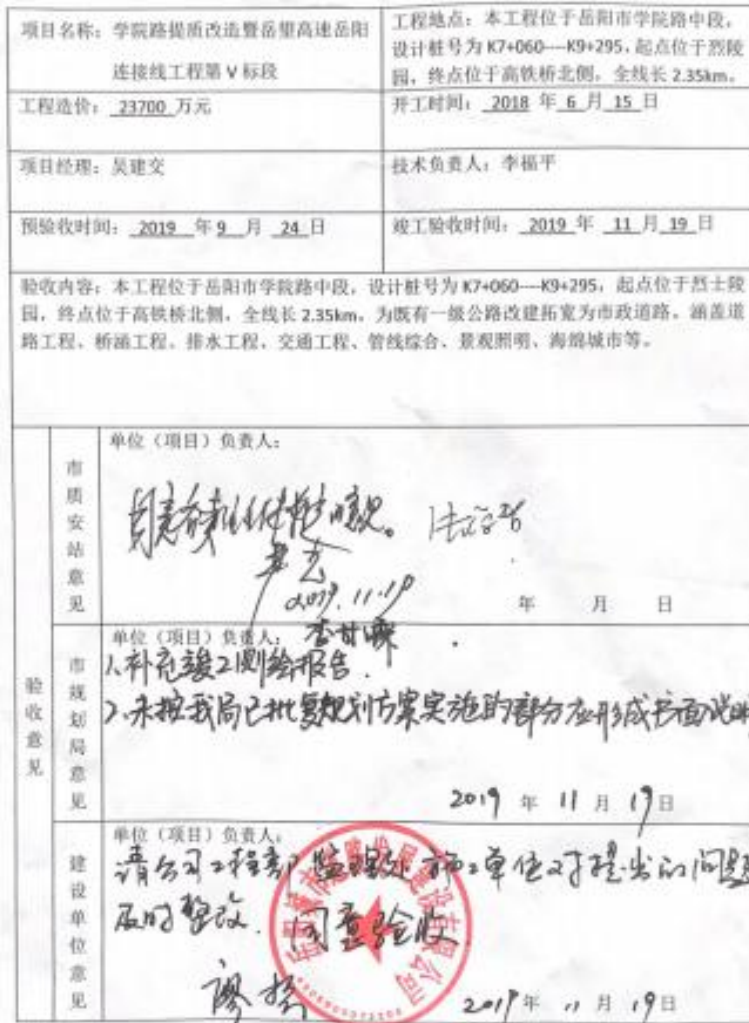 项目名称：学院路提质改造暨岳望高速岳阳
连接线工程第 V 标段
工程地点：本工程位于岳阳市学院路中段，
设计桩号为 K7+060---K9+295，起点位于烈陵
园，终点位于高铁桥北侧，全线长 2.35km。
工程造价：23700 万元
开工时间：2018 年 6 月 15 日
项目经理：吴建交
技术负责人：李福平
预验收时间：2019 年 9 月 24 日
竣工验收时间：2019 年 11 月 19 日
验收内容：本工程位于岳阳市学院路中段，设计桩号为 K7+060---K9+295，起点位于烈士陵
园，终点位于高铁桥北侧，全线长 2.35km，为既有一级公路改建拓宽为市政道路。涵盖道
路工程、桥涵工程、排水工程、交通工程、管线综合、景观照明、海绵城市等。
验收意见
市质安站意见
单位（项目）负责人：
2019.11.19
年 月 日
市规划局意见
单位（项目）负责人：
1.补充竣工测绘报告.
2.未按我局已批复规划方案实施的部分应形成书面说明
2019 年 11 月 19 日
建设单位意见
单位（项目）负责人：
请公司工程部 监理处 施工单位对提出的问题
及时整改. 同意验收
2019 年 11 月 19 日